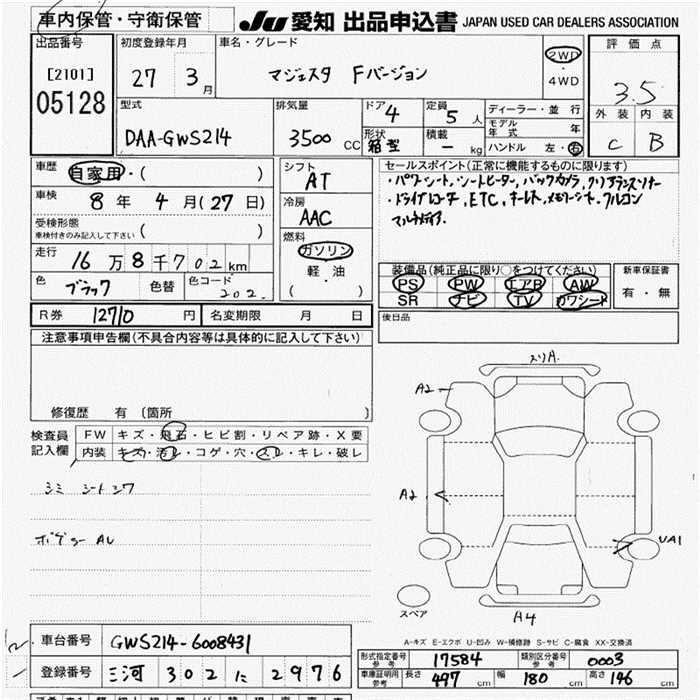 車内保管・守衛保管
JU 愛知 出品申込書 JAPAN USED CAR DEALERS ASSOCIATION
出品番号
[2101]
05128
初度登録年月
27 3月
車名・グレード
マジェスタ Fバージョン
2WD
・
4WD
評価点
3.5
外装 内装
C B
型式
DAA-GWS214
排気量
3500 CC
ドア 4
形状 箱型
定員 5人
積載 - kg
ディーラー・並行
モデル年式 年
ハンドル 左・右
車歴 自家用・( )
車検 8年 4月(27日)
受検形態
車検付きのみ記入して下さい ( )
走行 16万8千702km
色 ブラック 色替 色コード 202.
シフト
AT
冷房
AAC
燃料
ガソリン
軽・油
( )
セールスポイント(正常に機能するものに限ります)
・パワーシート,シートヒーター,バックカメラ,クリアランスソナー
・ドライブレコーダ,ETC,オートレベ,メモリーシート,クルコン
マルチナビ.
装備品(純正品に限り○をつけてください)
PS PW エアB AW
SR ナビ TV カワシート
新車保証書
有・無
R券 12710円 名変期限 月 日
後日品
注意事項申告欄(不具合内容等は具体的に記入して下さい)
修復歴 有 〔箇所 〕
検査員
記入欄
FW キズ・飛石・ヒビ割・リペア跡・X要
内装 キズ・汚レ・コゲ・穴・スレ・キレ・破レ
シミ シートシワ
ボデー AU
スリA.
A2
A2
UA1
A4
スペア
A-キズ E-エクボ U-凹み W-補修跡 S-サビ C-腐食 XX-交換済
車台番号 GWS214-6008431
登録番号 三河 302 に 2976
形式指定番号 参考 17584 類別区分番号 参考 0003
車庫証明用 参考 長さ 497cm 幅 180cm 高さ 146cm